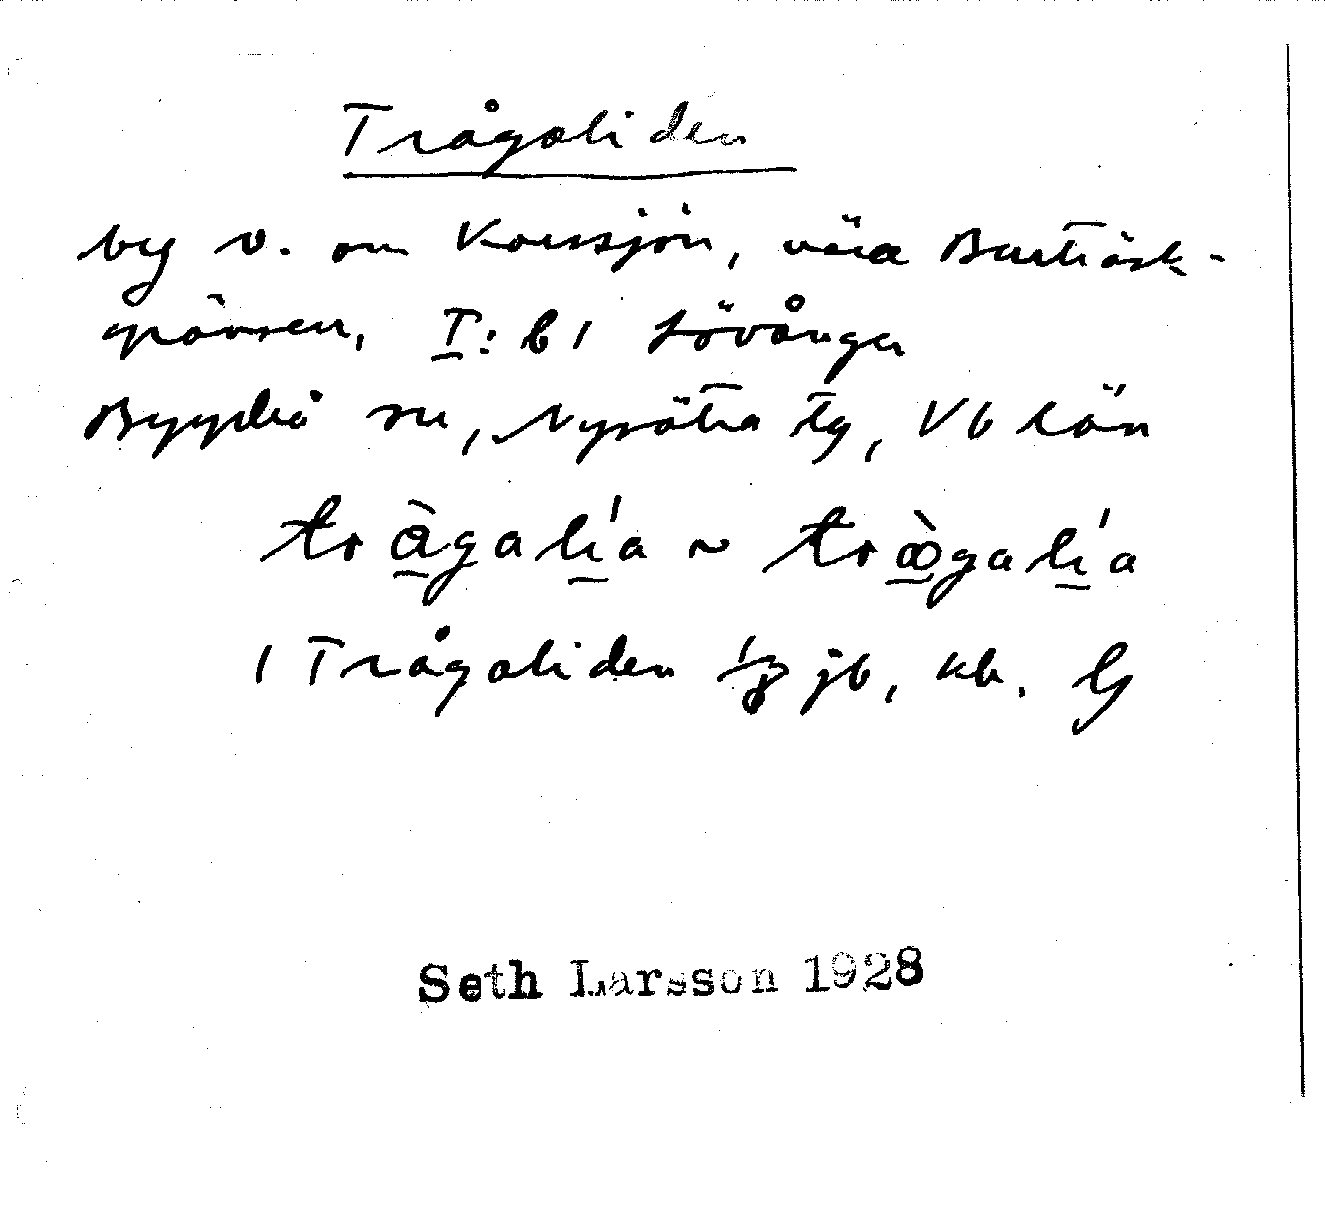 Trågaliden
by v. om Korssjön, nära Burträsk-
gränsen, I: b1 Lövånger
Bygdeå sn, Nysätra tg, Vb län
trågalía ~ trògalía
1 Trågaliden jb, kb.
Seth Larsson 1928